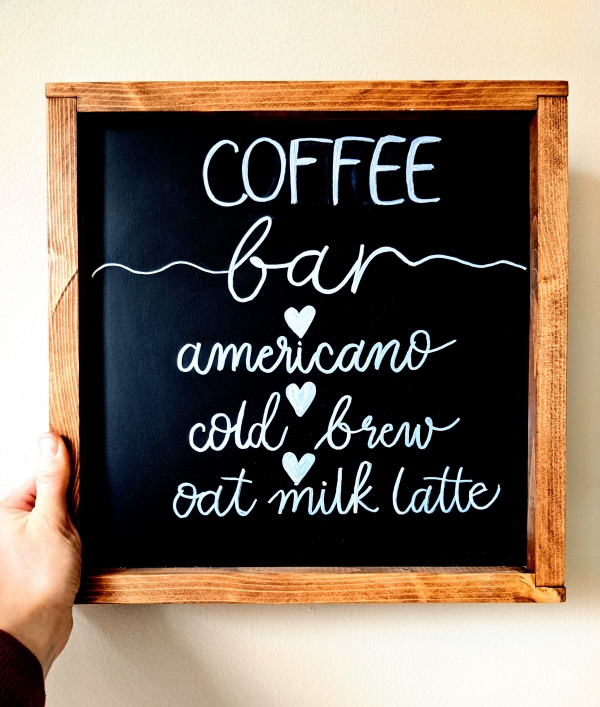 COFFEE
bar
americano
cold brew
oat milk latte